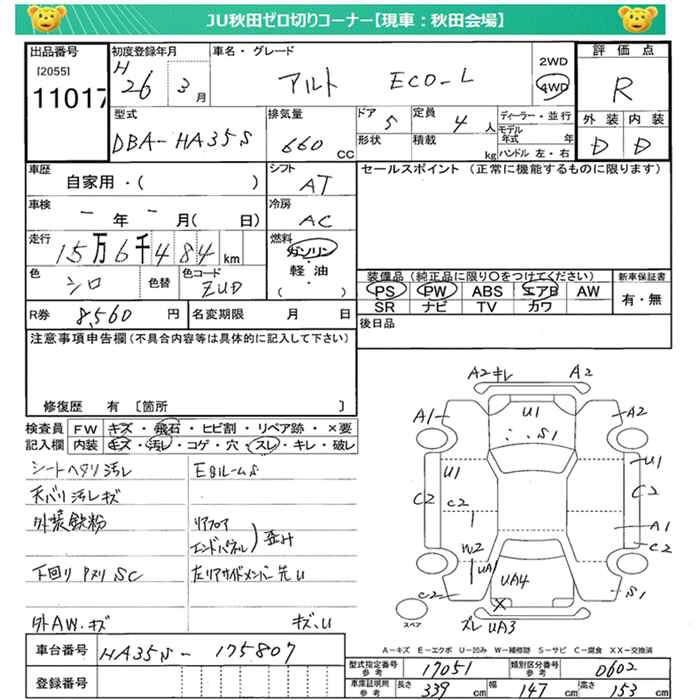 JU秋田ゼロ切りコーナー【現車：秋田会場】
出品番号
[2055]
11017
初度登録年月
H26 3月
車名・グレード
アルト ECO-L
2WD
4WD
評価点
R
外装 内装
D D
型式
DBA-HA35S
排気量
660 CC
ドア
5
形状
定員
4人
積載
kg
ディーラー・並行
モデル年式 年
ハンドル 左・右
車歴
自家用・( )
シフト
AT
セールスポイント (正常に機能するものに限ります)
車検
- 年 - 月( 日)
冷房
AC
走行
15万6千484 km
燃料
ガソリン
・
軽油
( )
色
シロ
色替
色コード
ZUD
装備品(純正品に限り○をつけてください)
PS PW ABS エアB AW
SR ナビ TV カワ
新車保証書
有・無
R券 8,560 円
名変期限 月 日
後日品
注意事項申告欄(不具合内容等は具体的に記入して下さい)
修復歴 有 [箇所 ]
検査員記入欄
FW キズ・飛石・ヒビ割・リペア跡・×要
内装 キズ・汚レ・コゲ・穴・スレ・キレ・破レ
シートヘタリ汚レ
天バリ汚レキズ
外装鉄粉
下回りサビSC
外AW.キズ
EBルームS
リアフロア
エンドパネル) 歪み
左リアサイドメンバー先U
キズ、U
A2キレ A2
A1 U1 A2
S1
U1 U1
C2 C2 C2
A1
W2 UA1 C2
UA4
C2 S1
ズレ UA3
スペア
A-キズ E-エクボ U-凹み W-補修跡 S-サビ C-腐食 XX-交換済
車台番号
HA35S-175807
登録番号
型式指定番号参考
17051
類別区分番号参考
0602
車庫証明用参考
長さ 339 cm 幅 147 cm 高さ 153 cm